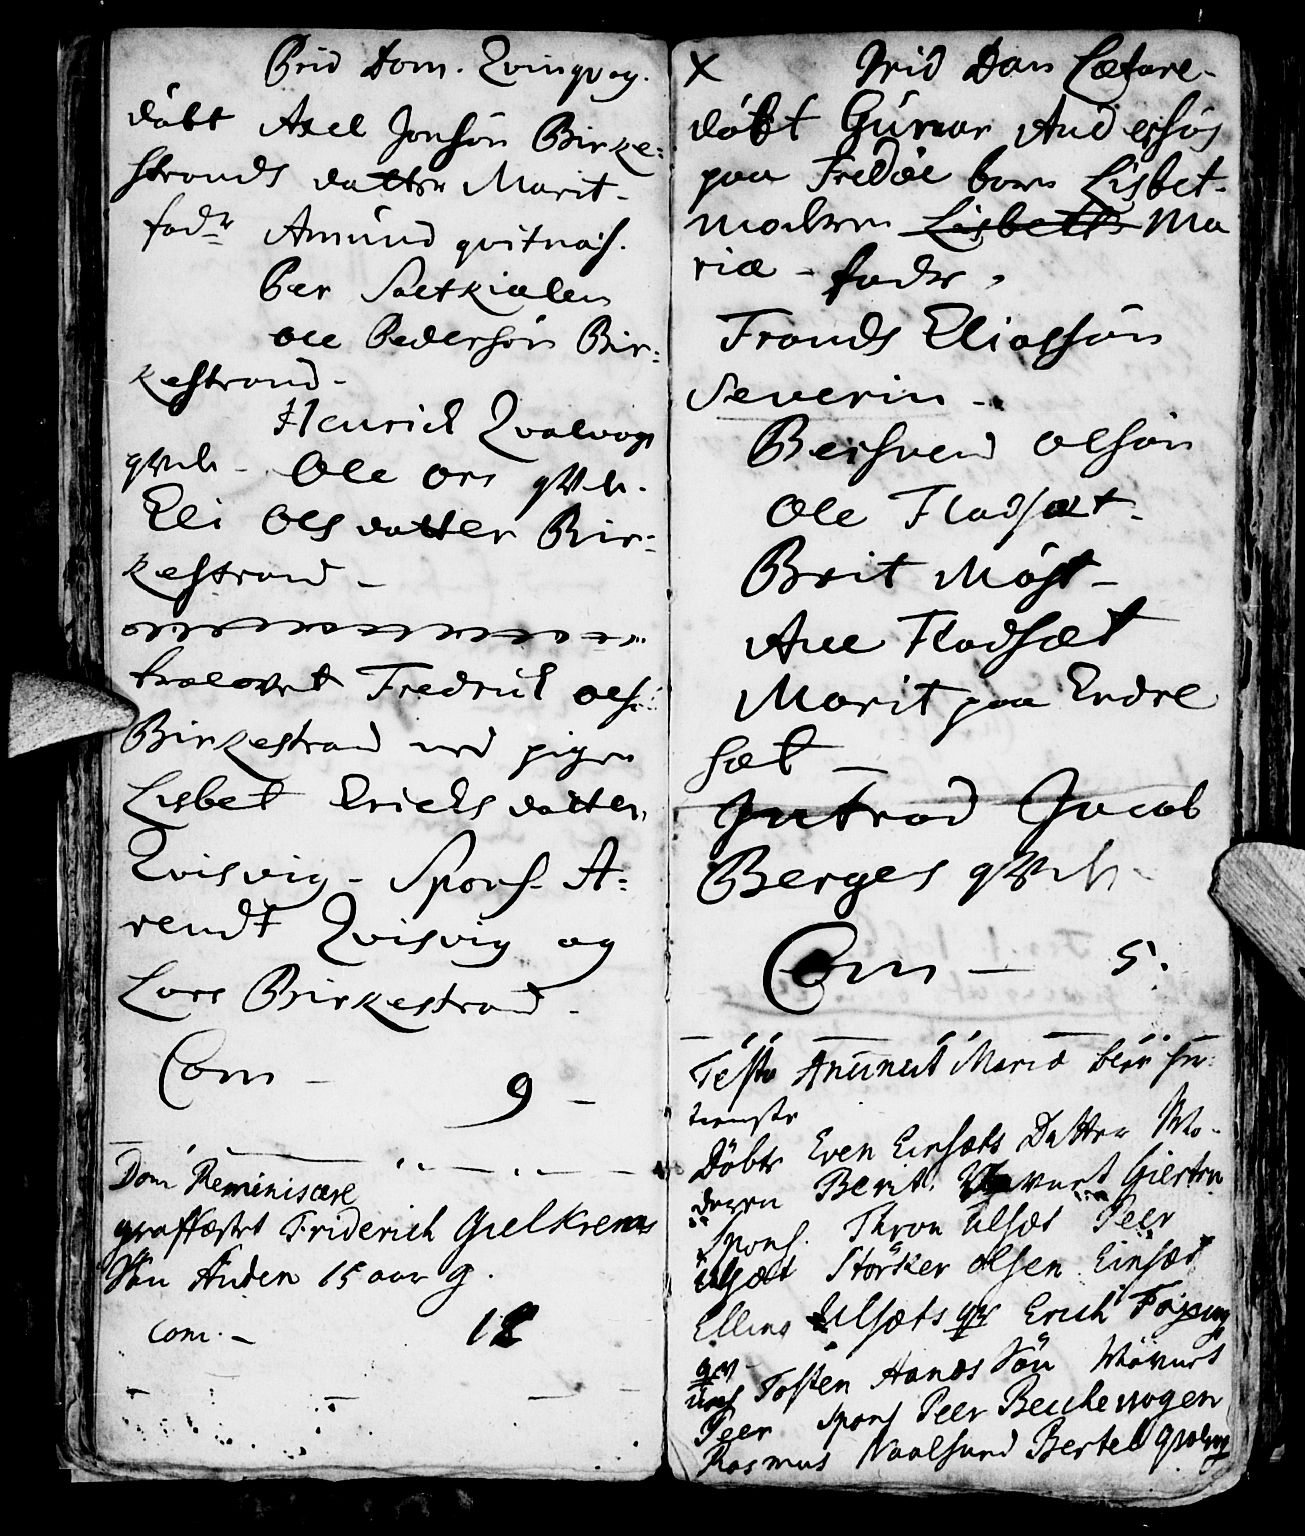 Prid Dom. Qvinqvag.
döbt Axel Jonsön Birke=
strands datter Marit-
fadr Amund qvitnæs.
Per Sætkialen
ole Pedersön Bir=
kestrand-
Henrick Qvalvogs
qvh- Ole ors qvh.
Eli Ols datter Bir=
kestrand-
trolovet Fredrick ols:
Birkestrand med pigen
Lisbet Ericks datter,
Qvisvig- Spons. A=
rendt Qvisvig og
Lars Birkestrand-
Com- 9-
Dom Reminiscere
graffæstet Friderich Gielkrems
Sön Anden 15 aar g.
Com.- 12
x Prid Dom Lætare-
döbt Gunar Andersøs
paa Fredöe barn Lisbet-
moderen Lisbeth Ma
riæ - fadr,
Trands Eliassön
Severin-
Bersvend olsön
Ole Fladsæt-
Brit Möst-
Ane Fladsæt
Marit paa Endre
sæt-
Introd Jacob
Berges qvh-
Com- 5:
Festo Anunciat Maria
Döbte Even Einsæts Datter Mo-
deren Berit
Spons. Thron Ulsæt Peer
Ulsæt Störker olsen Einsæt
Ellen Ulsæts qv Erich
qv
Tosten Hans Sön
Peer Spons Peer Beckevogen
Rasmus Naalsund Bertel